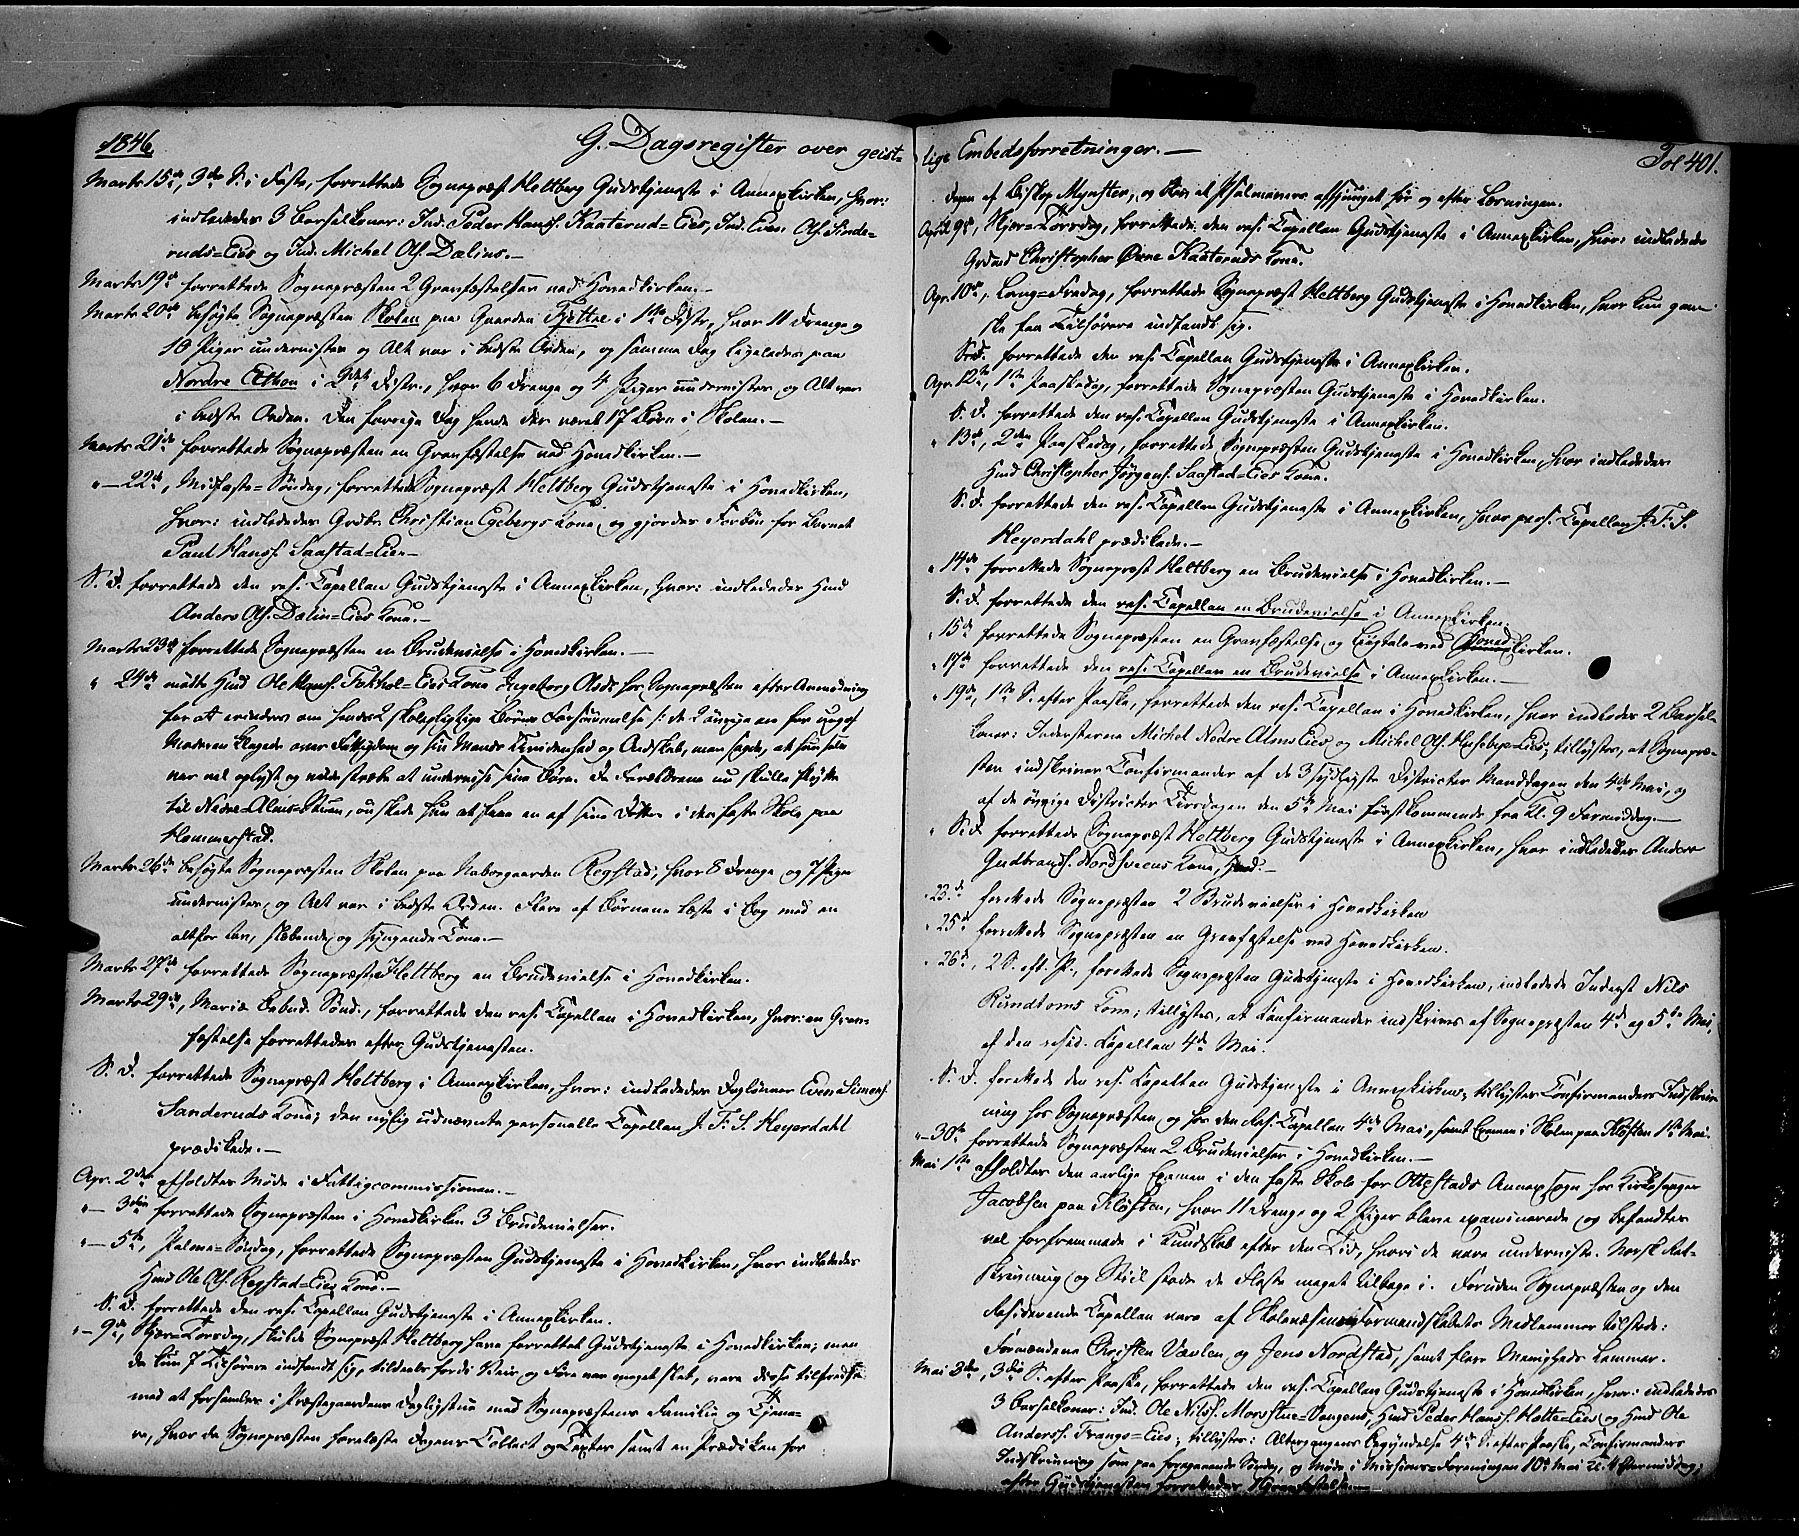 1846
G. Dagsregister over geist-
Marts 15de, 3de S. i Faste, forrettede Sognepræst Heltberg Gudstjeneste i Annexkirken, hvor:
indlededes 3 Barselkoner: Ind. Peder Hans. Kaaterud-Eies, Ind. Even Ols. Sinde-
ruds-Eies og Ind. Michel Ols. Dælins.-
Marts 19de forrettede Sognepræsten 2 Gravfæstelser ved Hovedkirken.-
Marts 20de besøgte Sognepræsten Skolen paa Gaarden Tjettne i 1ste Distr., hvor 11 Drenge og
10 Piger undervistes og Alt var i bedste Orden, og samme Dag ligeledes paa
Nordre Alhou i Distr., hvor 6 Drenge og 4 Piger undervistes, og Alt var
i bedste Orden. Den forrige Dag havde der været 17 Børn i Skolen.-
Marts 21de forrettede Sognepræsten en Gravfæstelse ved Hovedkirken.-
"-22de, Midfaste-Søndag, forrettede Sognepræst Heltberg Gudstjeneste i Hovedkirken,
hvor: indlededes Grdbr. Christian Egebergs Kone, og gjordes Forbøn for Barnet
Paul Hans. Saastad-Eie-
S. D. forrettede den res. Capellan Gudstjeneste i Annexkirken, hvor: indlededes Hmd
Anders Ols. Dælin-Eies Kone.-
Marts 23de forrettede Sognepræsten en Brudevielse i Hovedkirken.-
" 24de mødte Hmd Ole Hans. Fokhol-Eies Kone Ingeborg Olsdr for Sognepræsten efter Anmodning
for at erindres om hendes 2 skolepligtige Børns Forsømmelse /: de 2 øvrige ere for unge/
Moderen klagede over Fattigdom og sin Mands og Ondskab, men sagde, at hun selv
var vel oplyst og nu at undervise sine Børn. Da Forældrene nu skulle flytte
til Nedre-Alms-Stuen, ønskede hun at have en af sine i den faste Skole paa
Hommerstad.
Marts 26de besøgte Sognepræsten Skolen paa Nabogaarden Regstad, hvor 8 Drenge og 7 Piger
undervistes, og Alt var i bedste Orden. Flere af Børnene læste i Bog med en
altfor lav, slæbende og syngende Tone.-
Marts 27de forrettede Sognepræst Heltberg en Brudevielse i Hovedkirken.
Marts 29de, Mariæ Bebud. Sønd., forrettede den res. Capellan i Hovedkirken, hvor: en Grav-
fæstelse forrettedes efter Gudstjenesten.
S. D. forrettede Sognepræst Heltberg i Annexkirken, hvor: indlededes Daglønner Even Simens.
Sanderuds Kone; den nylig udnævnte personelle Capellan J. F. S. Heyerdahl
prædikede.-
Apr. 2den afholdtes Møde i Fattigcommissionen.-
"- 3die forrettede Sognepræsten i Hovedkirken 3 Brudevielser.
"- 5te, Palme-Søndag, forrettede Sognepræsten Gudstjeneste i Hovedkirken, hvor indlededes
Hmd Ole Ols. Regstad-Eies Kone.-
S. D. forrettede den res. Capellan Gudstjeneste i Annexkirken.
"- 9de, Skjær-Torsdag, skulde Sognepræst Heltberg have forrettet Gudstjeneste i Hovedkirken; men
da kun 7 Tilhørere indfandt sig, tildeels fordi Veir og Føre var meget slet, vare disse tilfredse
med at forsamles i Præstegaardens Daglystue med Sognepræstens Familie og Tjene-
re, hvor da Sognepræsten forelæste Dagens Collect og Texter samt en Prædiken for
lige Embedsforretninger.-
Fol 401.
Dagen af Biskop Mynster, og blev et Psalmevers afsjunget før og efter Læsningen.
April 9de, Skjær-Torsdag, forrettede den res. Capellan Gudstjeneste i Annexkirken, hvor: indlededes
Grdmd Christopher Øvre Kaateruds Kone.
Apr. 10de, Lang-Fredag, forrettede Sognepræst Heltberg Gudstjeneste i Hovedkirken, hvor kun gan-
ske faa Tilhørere indfandt sig.
S. D. forrettede den res. Capellan Gudstjeneste i Annexkirken.
Apr. 12te, 1ste Paaskedag, forrettede Sognepræsten Gudstjeneste i Hovedkirken.
S. D. forrettede den res. Capellan Gudstjeneste i Annexkirken.
" 13de, 2den Paaskedag, forrettede Sognepræsten Gudstjeneste i Hovedkirken, hvor indlededes
Hmd Christopher Jørgens. Saastad-Eies Kone.
S. D. forrettede den res. Capellan Gudstjeneste i Annexkirken, hvor pers. Capellan J. F. S.
Heyerdahl prædikede.-
" 14de forrettede Sognepræst Heltberg en Brudevielse i Hovedkirken.-
S. D. forrettede den res. Capellan en Brudevielse i Annexkirken.
" 15de forrettede Sognepræsten en Gravfæstelse og Liigtale ved Hovedkirken.
" 17de forrettede den res. Capellan en Brudevielse i Annexkirken.-
" 19de, 1ste S. efter Paaske, forrettede den res. Capellan i Hovedkirken, hvor indledes 2 Barsel-
koner: Inderstene Michel Nedre Alms Eies og Michel Ols. Huseby-Eies; tillystes, at Sognepræ-
sten indskriver Confirmander af de 3 sydligste Districter Manddagen den 4de Mai, og
af de øvrige Districter Tirsdagen den 5te Mai førstkommende fra Kl. 9 Formiddag.-
" S. D. forrettede Sognepræst Heltberg Gudstjeneste i Annexkirken, hvor indlededes Anders
Gudbrands. Nordhveens Kone,
" 23de forrettede Sognepræsten 2 Brudevielser i Hovedkirken
" 25de forrettede Sognepræsten en Gravfæstelse ved Hovedkirken.
" 26de, 2 S. eft. P., forrettede Sognepræsten Gudstjeneste i Hovedkirken, indledede Inderst Nils
Rundtoms Kone; tillystes, at Confirmander indskrives af Sognepræsten 4de og 5te Mai,
af den resid. Capellan 4de Mai.
S. D. forrettede den res. Capellan Gudstjeneste i Annexkirken; tillystes Confirmanders Indskriv-
ning hos Sognepræsten og hos den Res. Capellan 4de Mai, samt Examen i Skolen paa Kløften 1ste Mai.
"-30te forrettede Sognepræsten 2 Brudevielser i Hovedkirken.-
Mai 1ste afholdtes den aarlige Examen i den faste Skole for Ottestads Annexsogn hos Kirkesanger
Jacobsen paa Kløften, hvor 11 Drenge og 2 Piger bleve examinerede og befandtes
vel forfremmede i Kundskab efter den Tid, hvori de vare underviste. Norsk Ret-
skrivning og Stiil stode de Fleste meget tilbage i. Foruden Sognepræsten og den
Residerende Capellan vare af Skolevæsen Formandskabets Medlemmer tilstede:
Formændene Christen Vævlen og Jens Nordstad, samt flere Menigheds Lemmer.
Mai 3die, 3die S. efter Paaske, forrettede den res. Capellan Gudstjeneste i Hovedkirken, hvor: indlededes
3 Barselkoner: Ind. Ole Nils. Morstue-Vangens, Hmd Peder Hans. Hotte-Eies og Hmd Ole
Anders. Frangs-Eies; tillystes: Altergangens Begyndelse 4de S. efter Paaske, Confirmanders
Indskrivning som paa foregaaende Søndag, og Møde i Missions-Foreningen 10de Mai Kl. 4 Eftermiddag;
efter Gudstjenesten forrettedes 1 Gravfæstelse.-